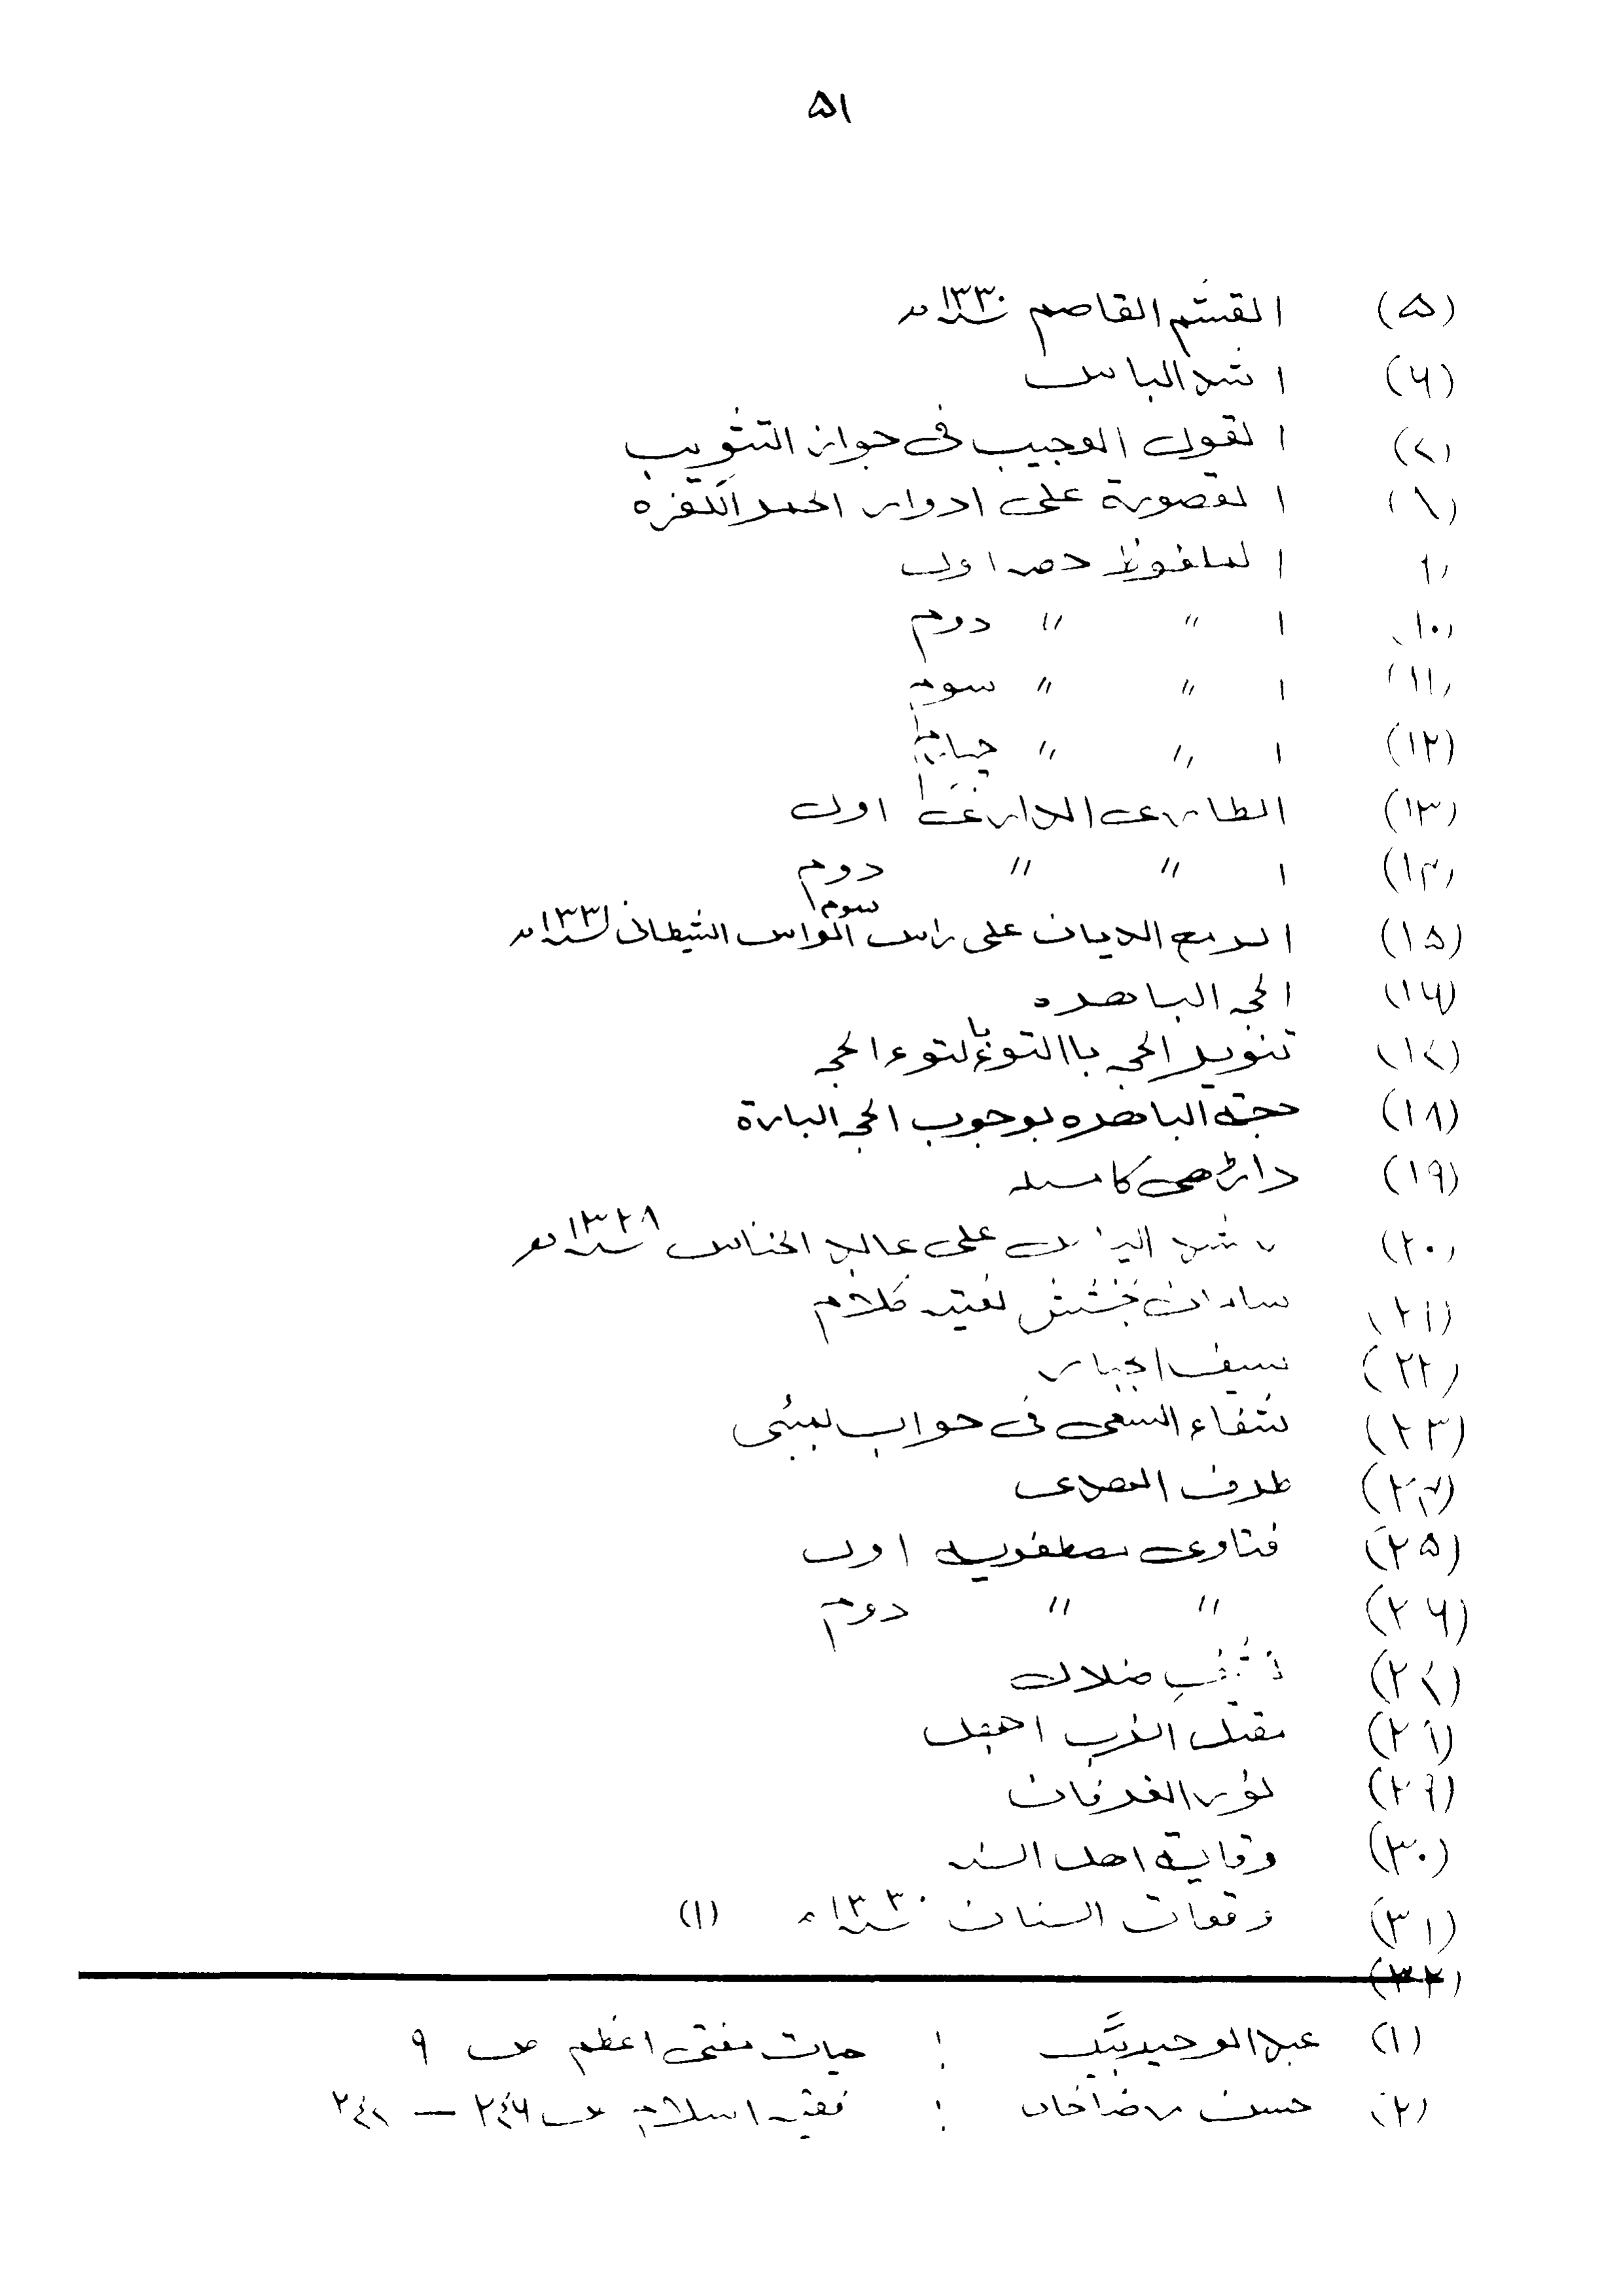 ۵۱
(۵) القثم القاصم ۱۳۳۰ سنہ ھ
(۶) اشد الباس
(۷) القول العجیب فی جواز التثویب
(۸) القصورة علی ادوار الحمر الکفرہ
۹) الملفوظ حصہ اول
۱۰) ا " " دوم
(۱۱) ا " " سوم
(۱۲) ا " " چہارم
(۱۳) الطاری الداری اول
(۱۴) ا " " دوم
سوم
(۱۵) الرمح الدیان علی راس الواس الشیطانی ۱۳۳۱ سنہ ھ
(۱۶) الحجہ الباھرہ
(۱۷) تنویر الحجہ با التواء الحجہ
(۱۸) حجتہ الباھرہ بوجوب الحجہ البارة
(۱۹) داڑھی کا مسلہ
(۲۰) شد علی الخناس ۱۳۲۸ سنہ ھ
(۲۱) سامان بخشش نعتیہ کلام
(۲۲) سیف الجبار
(۲۳) شفاء السعی فی جواب بمبئی
(۲۴) طرف
(۲۵) فتاوی مصطفویہ اول
(۲۶) " " دوم
(۲۷) ضلال
(۲۸) مقتل
(۲۹) نور الفرقان
(۳۰) وقایة اھل السنہ
(۳۱) وقعات السنان ۱۳۳۰ سنہ ھ (۱)
(۳۲)
(۱) عبد الوحید بیگ : حیات مفتی اعظم ص ۹
(۲) حسن رضا خاں : فقیہ اسلام ص